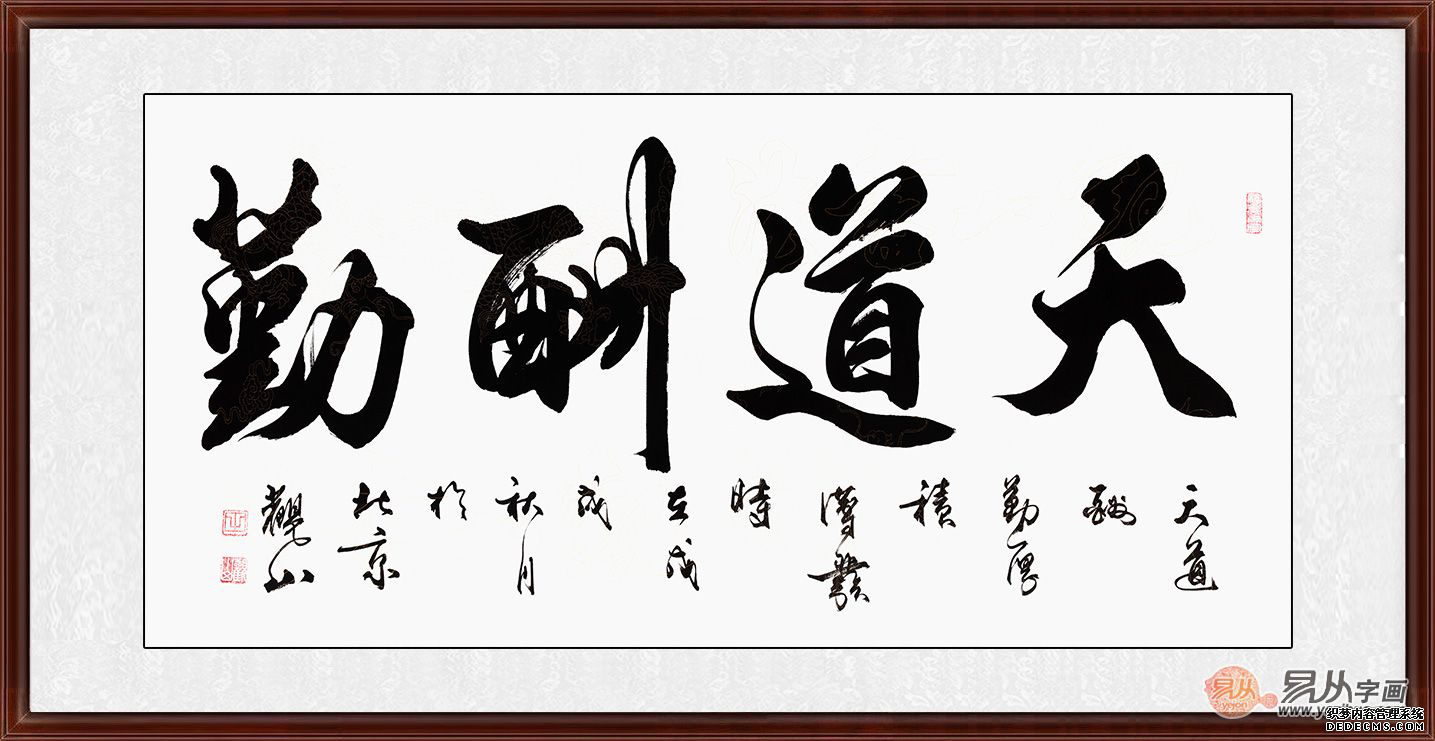 天道酬勤
天道
酬
勤厚
積
薄發
時
在戊
戌
秋月
於
北京
觀山
易从
易从字画
织梦内容管理系统
DEDECMS.COM